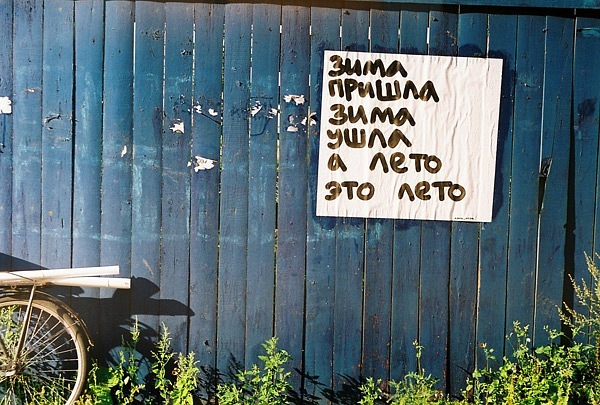 зима
пришла
зима
ушла
а лето
это лето